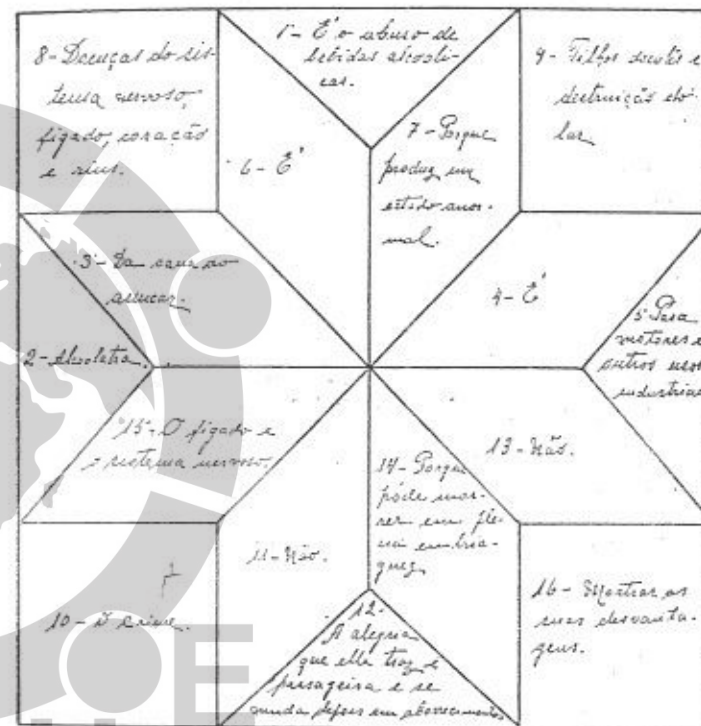 1 - E' o abuso de
bebidas alcooli-
cas.
8 - Doenças do sis-
tema nervoso,
figado, coração
e rins.
9 - Filhos doentes e
destruição do
lar.
7 - Porque
produz um
estado anor-
mal.
6 - E'
3 - Da cana ao
assucar.
4 - E'
5 Para
motores e
outros usos
industriaes
2 - Alcoolatra.
15 - O figado e
o sistema nervoso.
14 - Porque
póde mor-
rer em ple-
na embria-
guez
13 - Não.
11 - Não.
10 - O crime.
12 -
A alegria
que elle traz é
passageira e se
muda depois em aborrecimentos
16 - Mostrar as
suas desvanta-
gens.